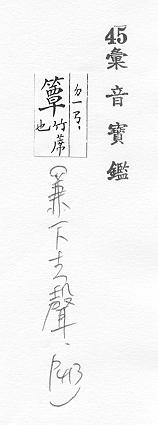 45彙音寶鑑
ㄉㄧㄢˋ
簟竹蓆也
(兼下去聲.P413)